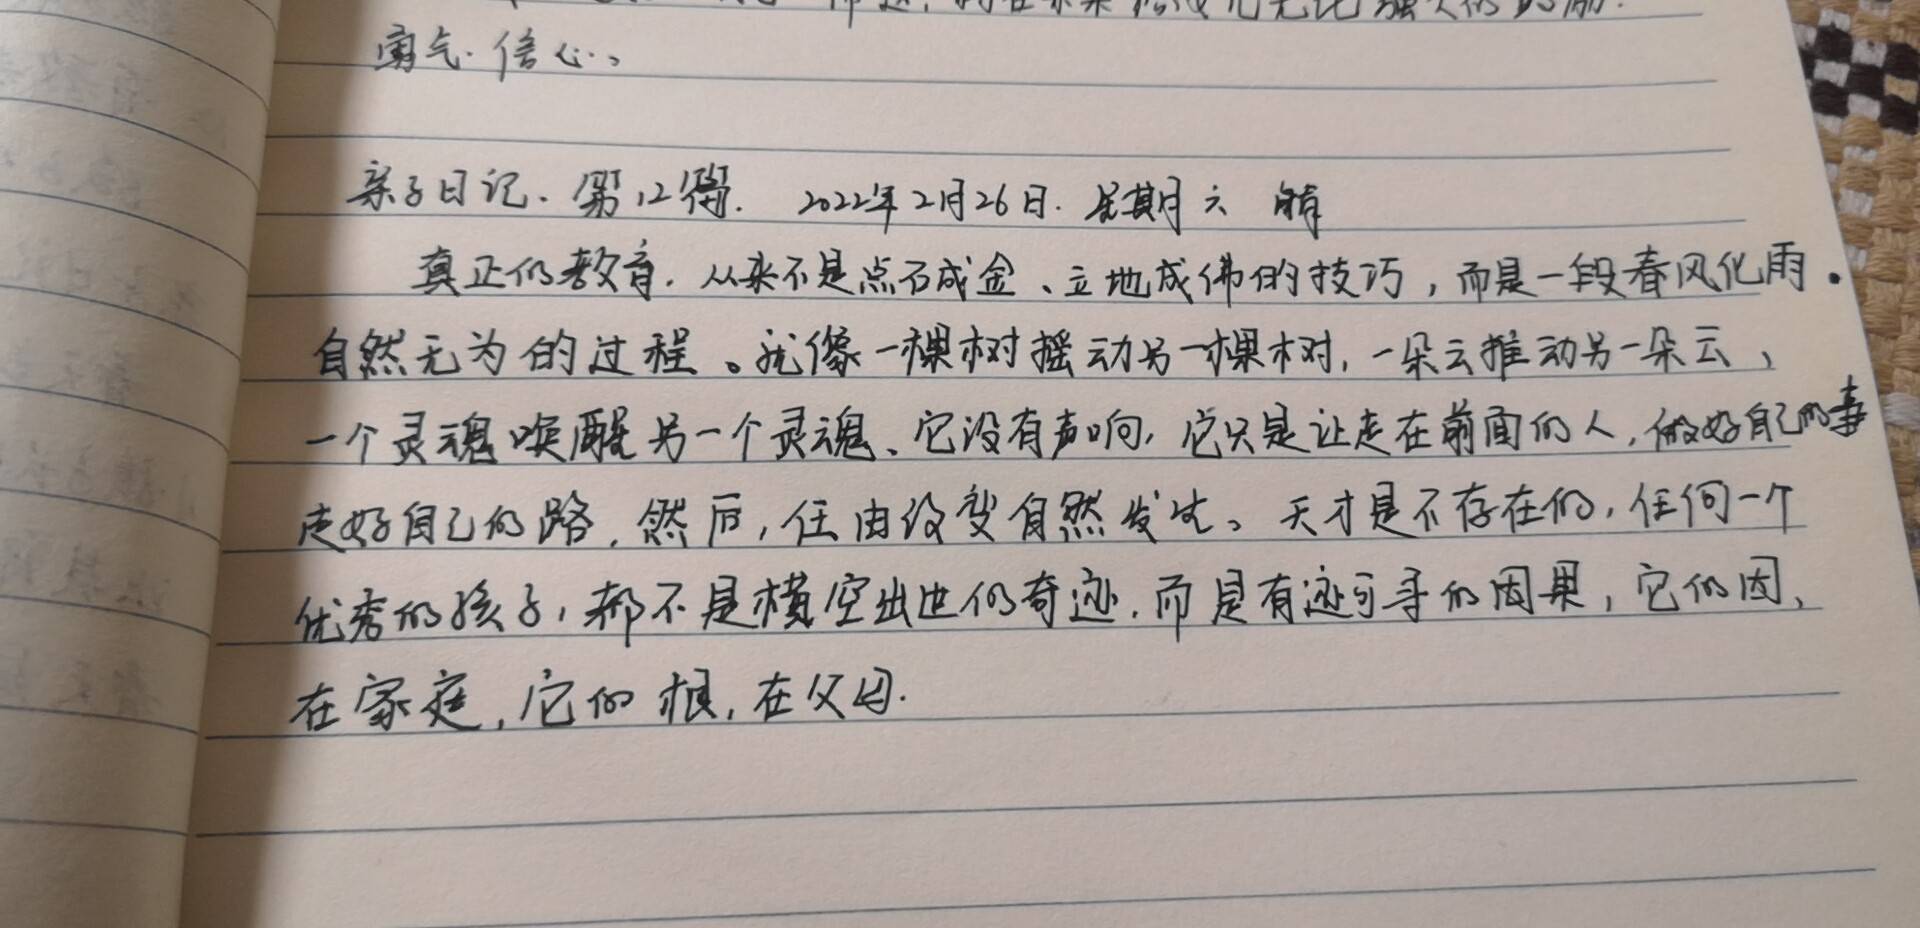 勇气.信心.、
亲子日记.第12篇. 2022年2月26日.星期六 晴
真正的教育.从来不是点石成金、立地成佛的技巧,而是一段春风化雨.
自然无为的过程。就像一棵树摇动另一棵树,一朵云推动另一朵云、
一个灵魂唤醒另一个灵魂、它没有声响,它只是让走在前面的人,做好自己的事
走好自己的路,然后,任由改变自然发生。天才是不存在的,任何一个
优秀的孩子,都不是横空出世的奇迹,而是有迹可寻的因果,它的因、
在家庭,它的根,在父母.